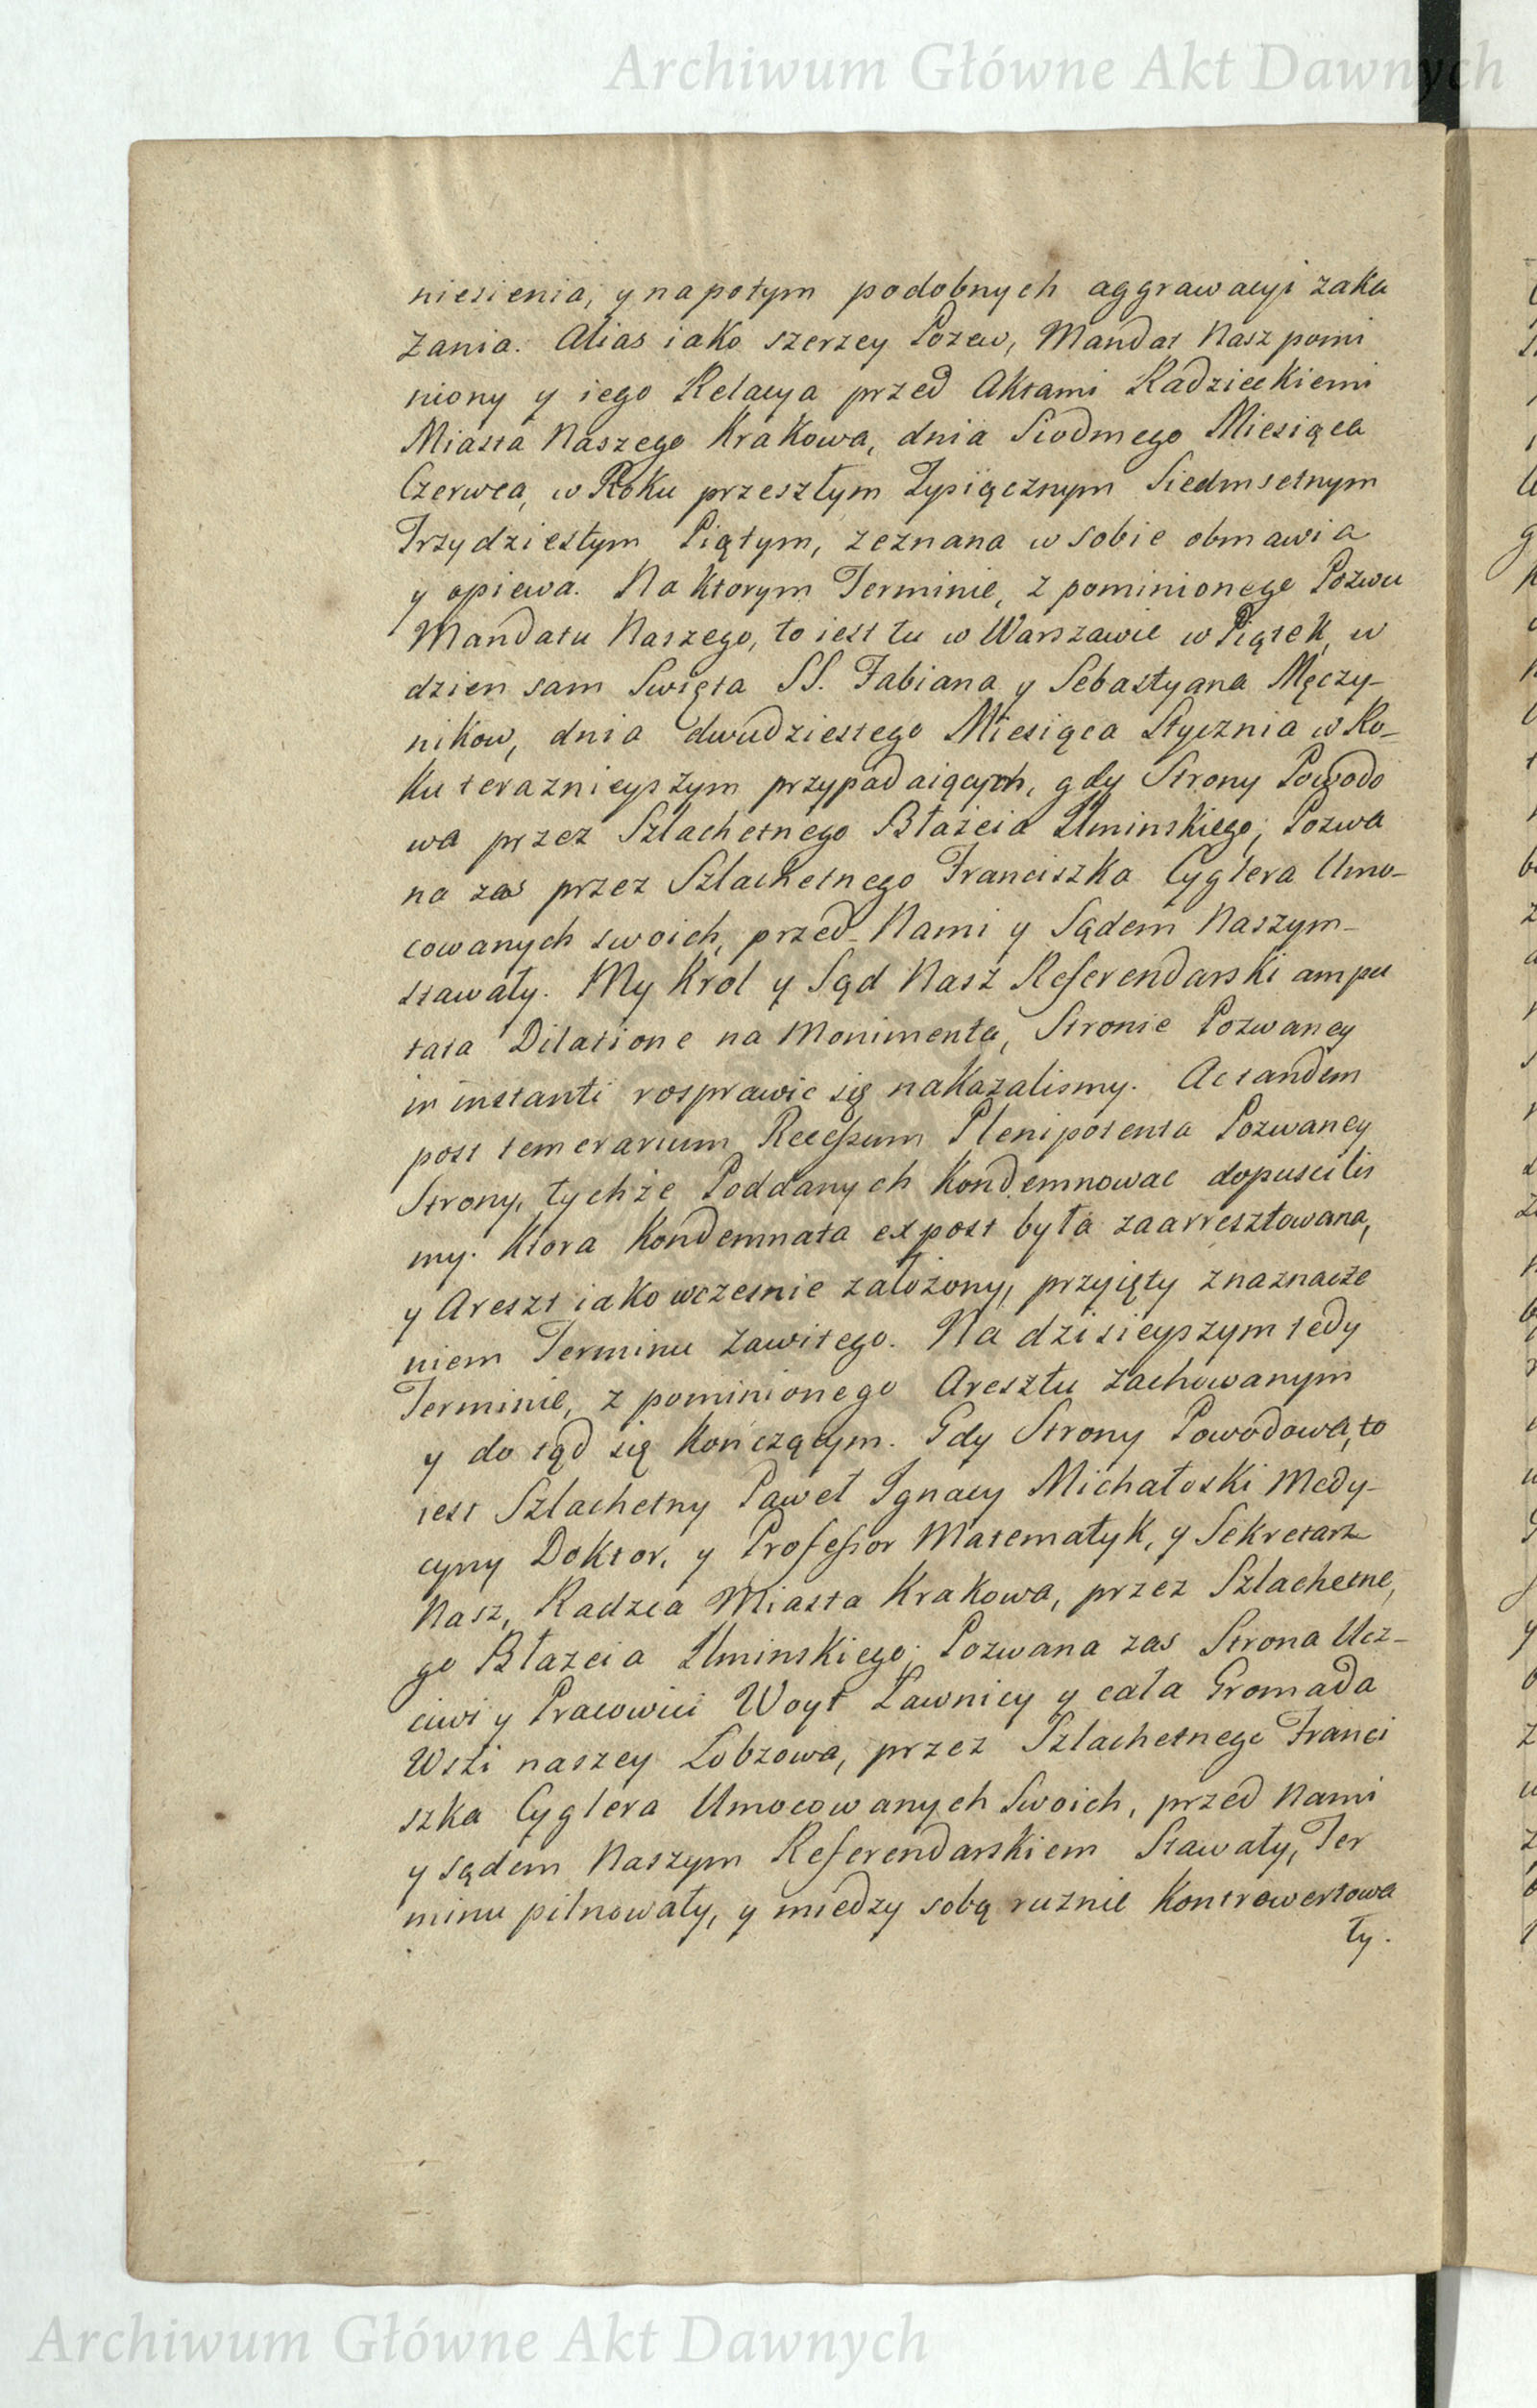 Archiwum Główne Akt Dawnych
niesienia, y napotym podobnych aggrawacyi zaka
zania. Alias iako szerzey Pozew, Mandat Nasz pomi
niony y iego Relacya przed Aktami Radzieckiemi
Miasta Naszego Krakowa, dnia Siodmego Miesiąca
Czerwca, w Roku przeszłym Tysiącznym Siedmsetnym
Trzydziestym Piątym, zeznana w sobie obmawia
y opiewa. Na ktorym Terminie, z pominionego Pozwu
Mandatu Naszego, to iest tu w Warszawie w Piątek, w
dzien sam Swięta SS. Fabiana y Sebastyana Męczy-
nikow, dnia dwudziestego Miesiąca Stycznia w Ro-
ku teraznieyszym przypadaiących, gdy Strony Powodo
wa przez Szlachetnego Błażeia Uminskiego; Pozwa
na zas przez Szlachetnego Franciszka Cyglera Umo-
cowanych swoich, przed Nami y Sądem Naszym
stawały. My Krol y Sąd Nasz Referendarski ampu
tata Dilatione na Monimenta, Stronie Pozwaney
in instanti rosprawic się nakazalismy. Ac tandem
post temerarium Recessum Plenipotenta Pozwaney
Strony, tychże Poddanych kondemnowac dopuscilis
my. Ktora kondemnata ex post była zaarresztowana,
y Areszt iako wczesnie założony, przyięty z naznacze
niem Terminu Zawitego. Na dzisieyszym tedy
Terminie, z pominionego Aresztu zachowanym
y do tąd się kończącym. Gdy Strony Powodowa, to
iest Szlachetny Paweł Ignacy Michałoski Medy-
cyny Doktor, y Professor Matematyk, y Sekretarz
Nasz, Radzca Miasta Krakowa, przez Szlachetne,
go Błazeia Uminskiego; Pozwana zas Strona Ucz-
ciwi y Pracowici Woyt Ławnicy y cała Gromada
Wsi naszey Łobzowa, przez Szlachetnego Franci
szka Cyglera Umocowanych Swoich, przed Nami
y sądem Naszym Referendarskiem Stawały, Ter
minu pilnowały, y miedzy sobą ruznie kontrowertowa
ły.
Archiwum Główne Akt Dawnych